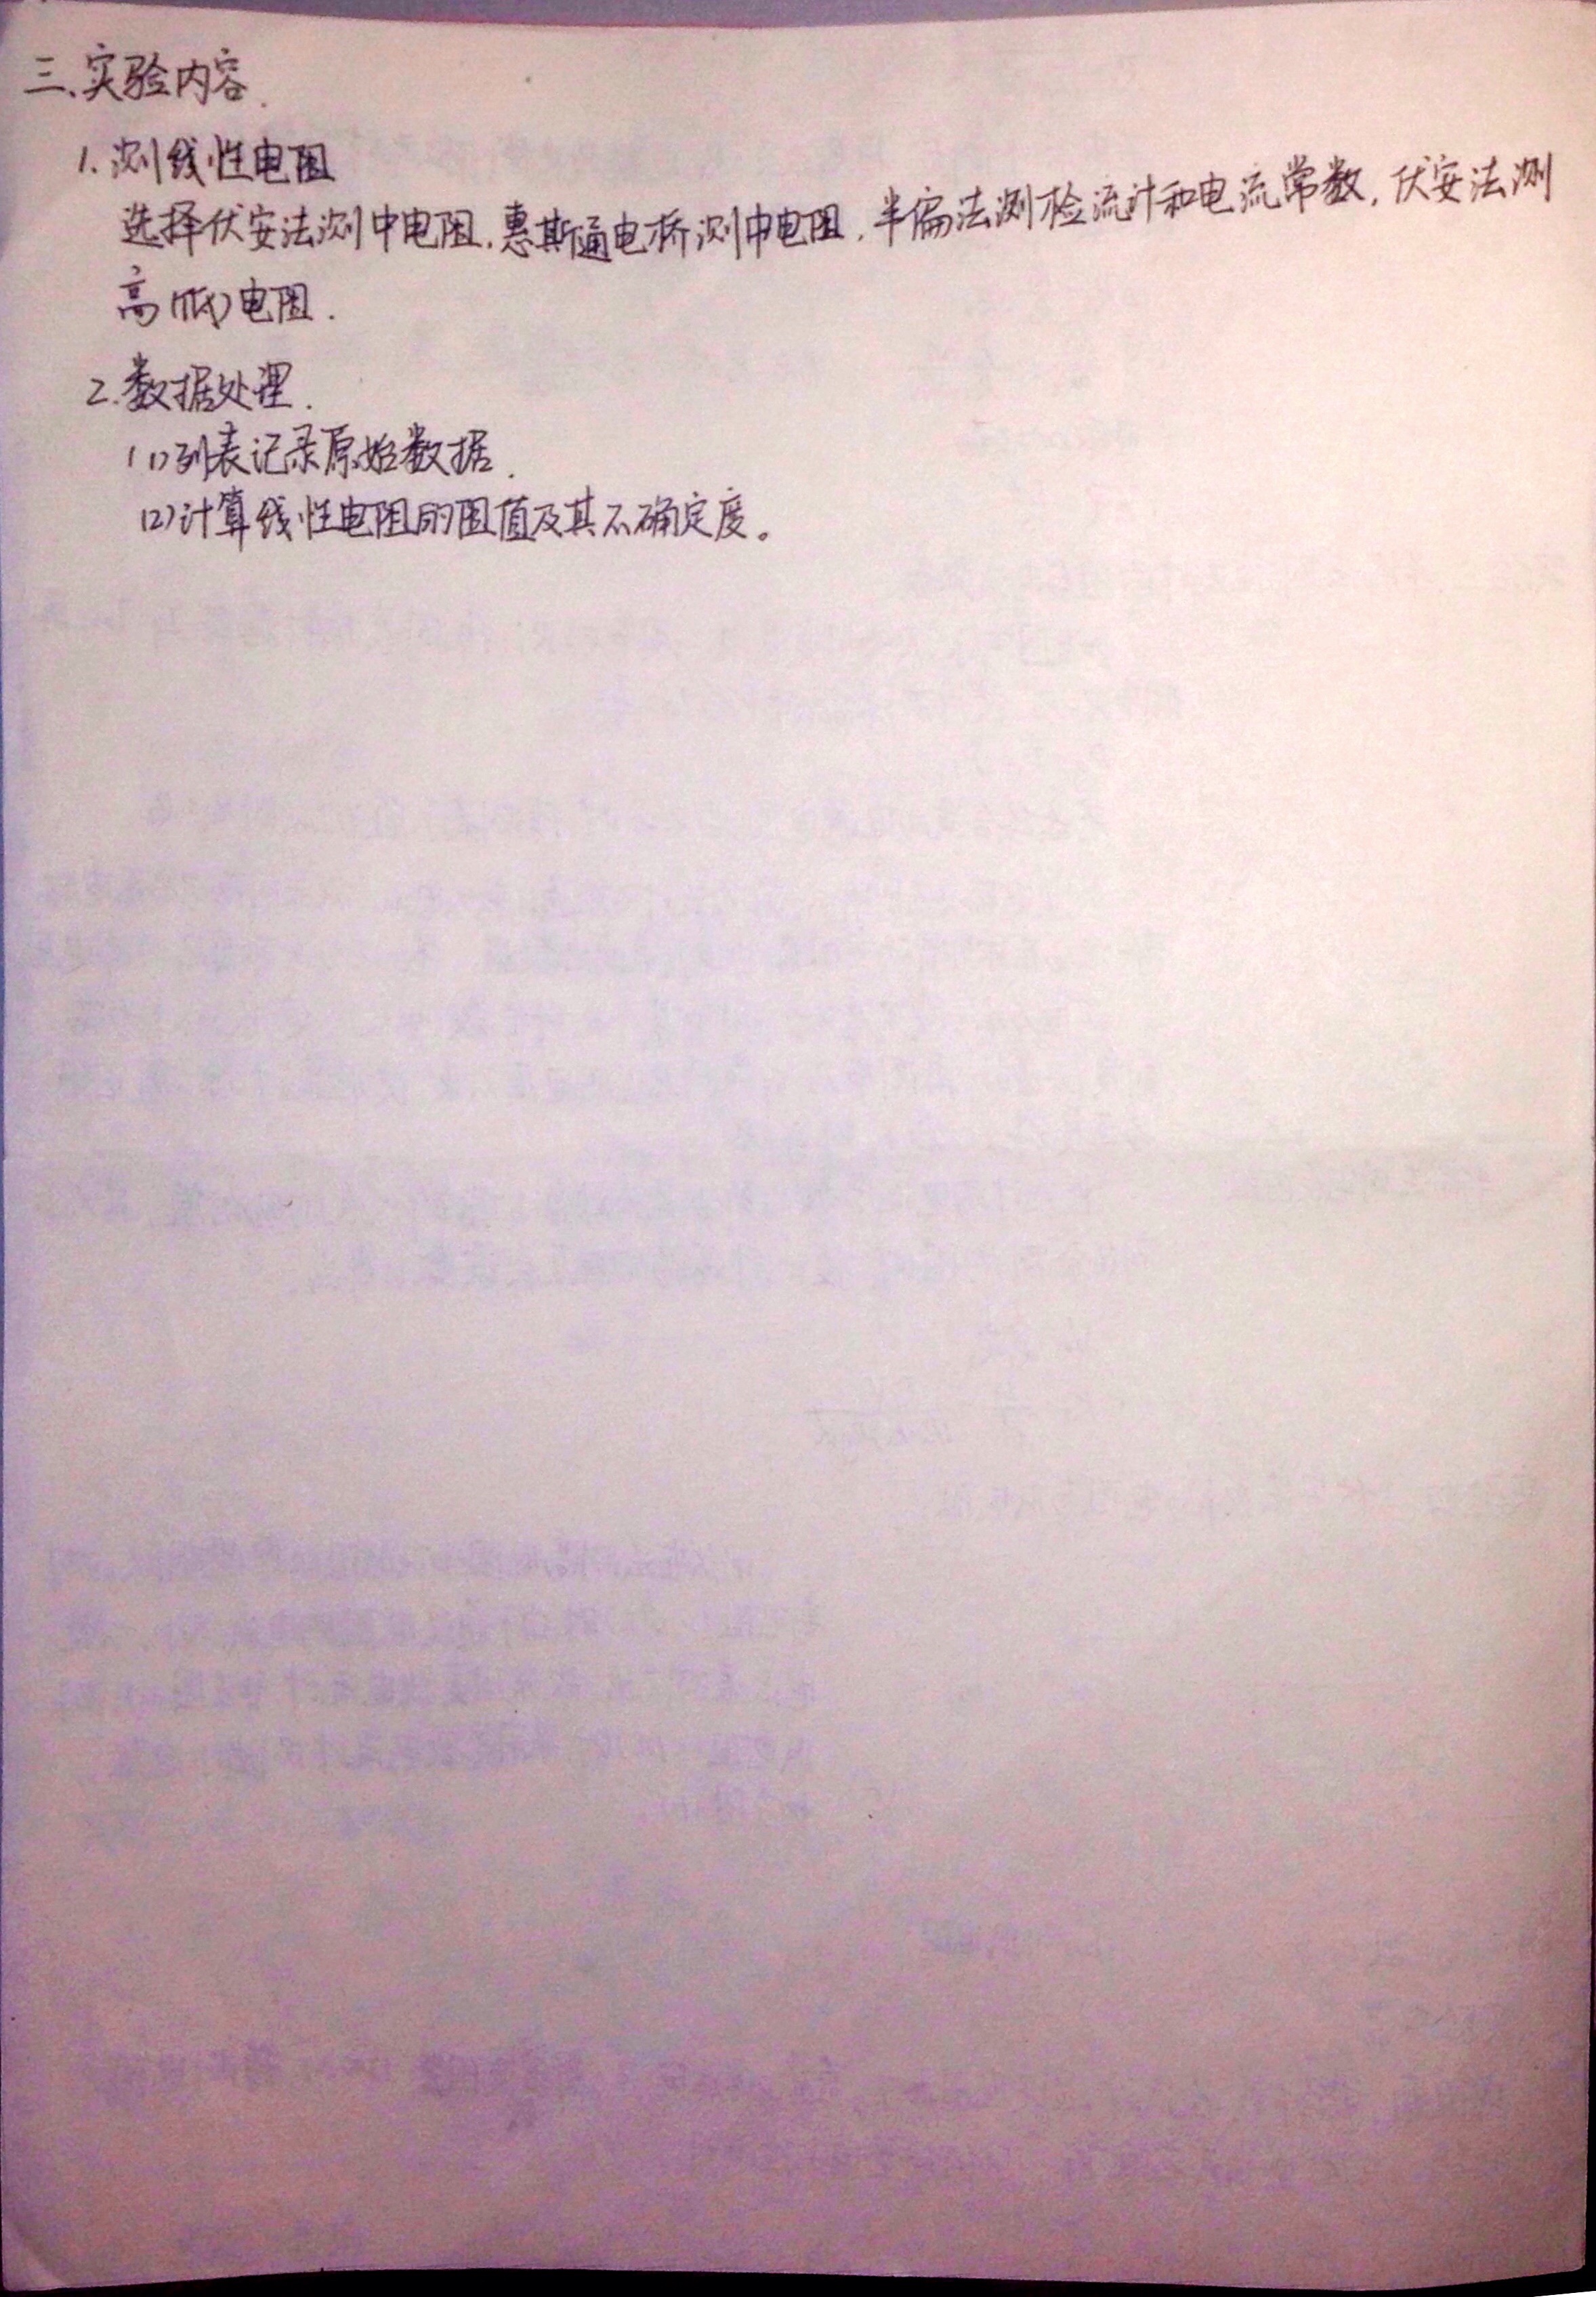 三、实验内容.
1. 测线性电阻
选择伏安法测中电阻,惠斯通电桥测中电阻,半偏法测检流计和电流常数,伏安法测
高(低)电阻.
2.数据处理.
(1)列表记录原始数据.
(2)计算线性电阻的阻值及其不确定度。